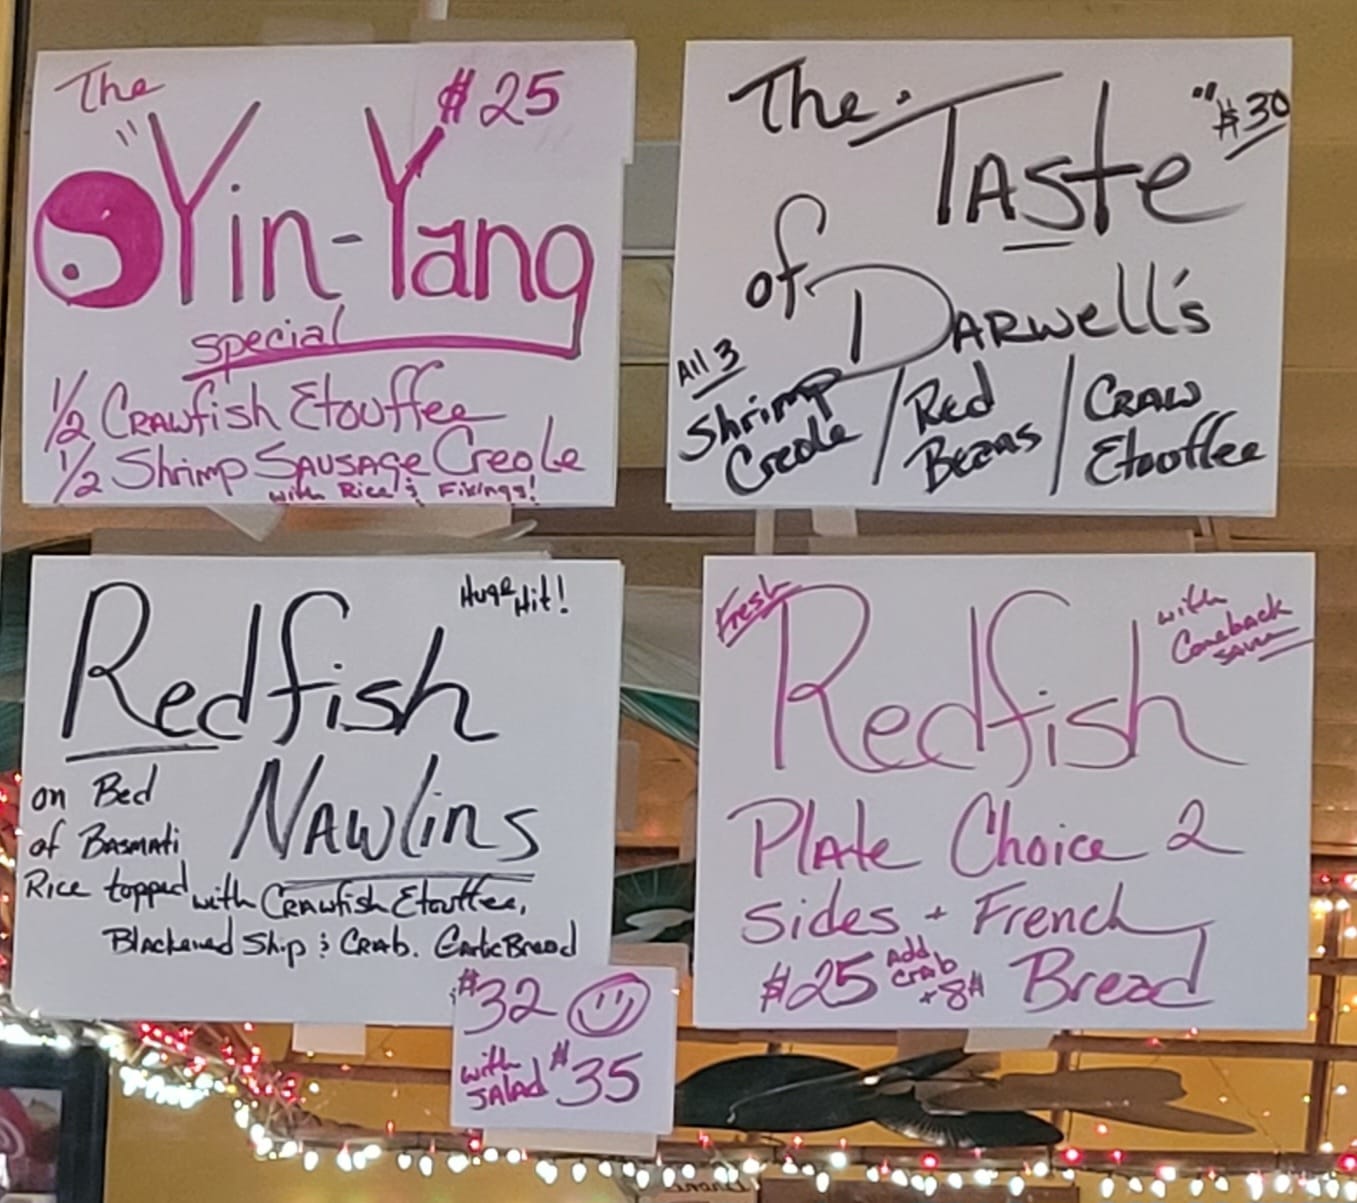 The $25
"Yin-Yang
special
1/2 Crawfish Etouffee
1/2 Shrimp Sausage Creole
with Rice & Fixings!
The "Taste" $30
of Darwell's
All 3
Shrimp Creole / Red Beans / Craw Etouffee
Huge Hit!
Redfish
Nawlins
on Bed
of Basmati
Rice topped with Crawfish Etouffee,
Blackened Ship & Crab. Garlic Bread
$32
with Salad $35
Fresh Redfish with Comeback
Plate Choice 2
sides + French
$25 Add Crab +8$ Bread